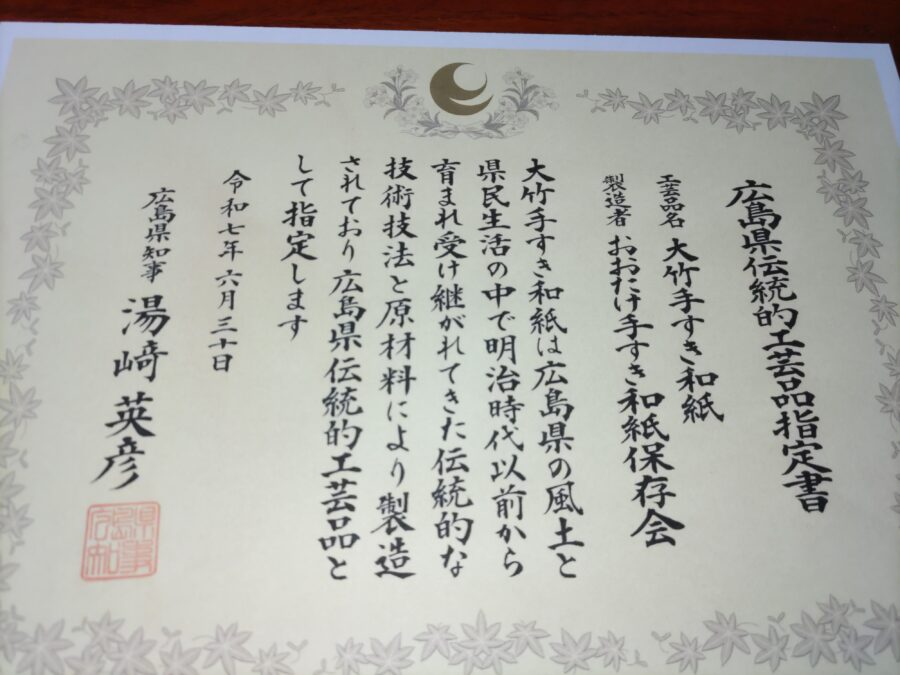 広島県伝統的工芸品指定書
工芸品名 大竹手すき和紙
製造者 おおたけ手すき和紙保存会
大竹手すき和紙は広島県の風土と
県民生活の中で明治時代以前から
育まれ受け継がれてきた伝統的な
技術技法と原材料により製造
されており広島県伝統的工芸品と
して指定します
令和七年六月三十日
広島県知事 湯﨑英彦